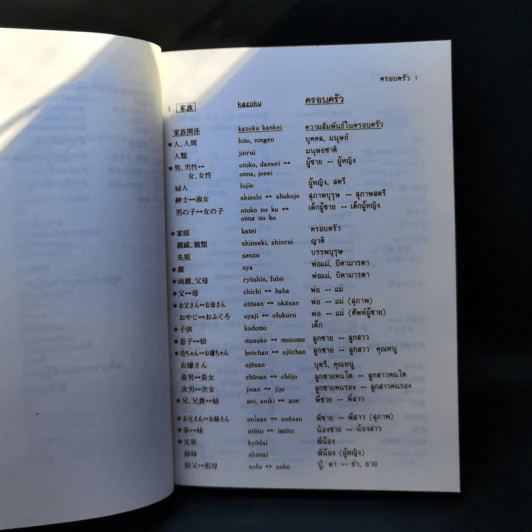 ครอบครัว 1
1. 家族 kazoku ครอบครัว
家族関係 kazoku kankei ความสัมพันธ์ในครอบครัว
*人, 人間 hito, ningen บุคคล, มนุษย์
人類 jinrui มนุษยชาติ
*男, 男性↔ otoko, dansei ↔ ผู้ชาย -- ผู้หญิง
女, 女性 onna, josei
婦人 fujin ผู้หญิง, สตรี
紳士↔淑女 shinshi ↔ shukujo สุภาพบุรุษ -- สุภาพสตรี
男の子↔女の子 otoko no ko ↔ เด็กผู้ชาย -- เด็กผู้หญิง
onna no ko
*家庭 katei ครอบครัว
親戚, 親類 shinseki, shinrui ญาติ
先祖 senzo บรรพบุรุษ
*親 oya พ่อแม่, บิดามารดา
*両親, 父母 ryōshin, fubo พ่อแม่, บิดามารดา
*父↔母 chichi ↔ haha พ่อ -- แม่
*お父さん↔お母さん otōsan ↔ okāsan พ่อ -- แม่ (สุภาพ)
おやじ↔おふくろ oyaji ↔ ofukuro พ่อ -- แม่ (ศัพท์ผู้ชาย)
*子供 kodomo เด็ก
*息子↔娘 musuko ↔ musume ลูกชาย -- ลูกสาว
*坊ちゃん↔お嬢ちゃん botchan ↔ ojōchan ลูกชาย -- ลูกสาว คุณหนู
お嬢さん ojōsan บุตรี, คุณหนู
長男↔長女 chōnan ↔ chōjo ลูกชายคนโต -- ลูกสาวคนโต
次男↔次女 jinan ↔ jijo ลูกชายคนรอง -- ลูกสาวคนรอง
*兄, 兄貴↔姉 ani, aniki ↔ ane พี่ชาย -- พี่สาว
*お兄さん↔お姉さん onīsan ↔ onēsan พี่ชาย -- พี่สาว (สุภาพ)
*弟↔妹 otōto ↔ imōto น้องชาย -- น้องสาว
*兄弟 kyōdai พี่น้อง
姉妹 shimai พี่น้อง (ผู้หญิง)
祖父↔祖母 sofu ↔ sobo ปู่, ตา -- ย่า, ยาย